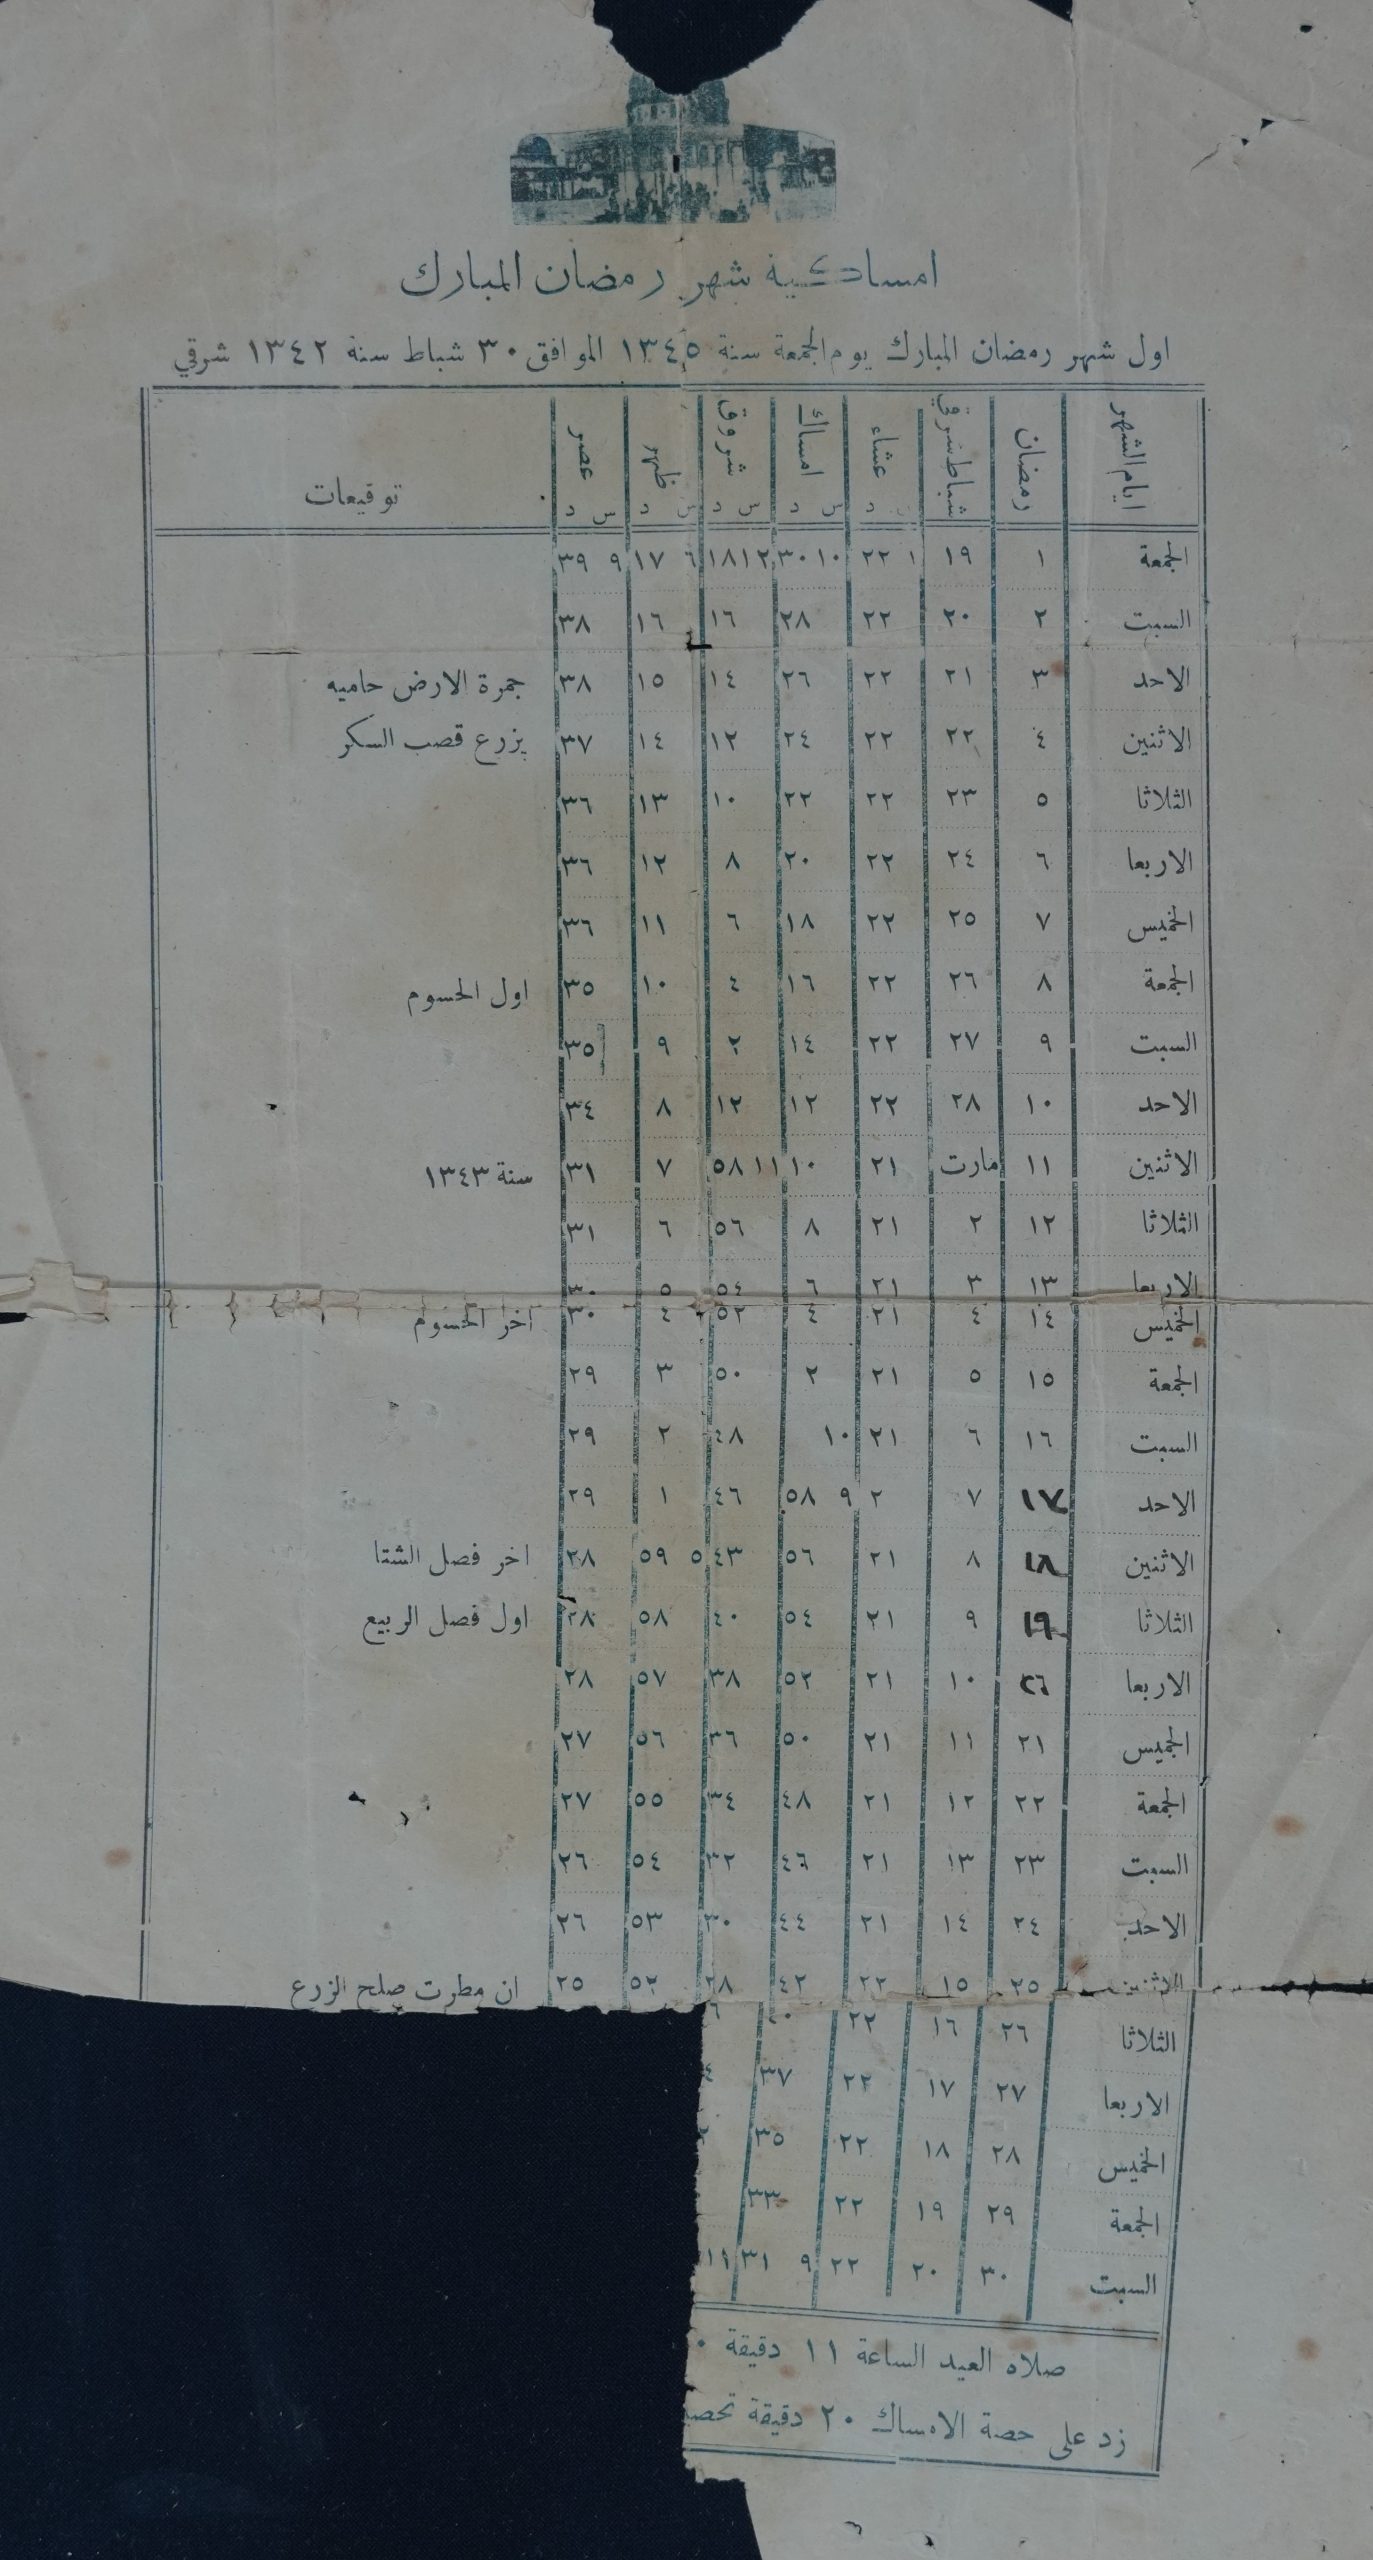 امساكية شهر رمضان المبارك
اول شهر رمضان المبارك يوم الجمعة سنة ١٣٤٥ الموافق ٣٠ شباط سنة ١٣٤٢ شرقي
ايام الشهر رمضان شباط شرقي عشاء امساك شروق ظهر عصر توقيعات
س د س د س د س د س د
الجمعة ١ ١٩ ١ ٢٢ ١٠ ٣٠ ١٢ ١٨ ٦ ١٧ ٩ ٣٩
السبت ٢ ٢٠ ٢٢ ٢٨ ١٦ ١٦ ٣٨
الاحد ٣ ٢١ ٢٢ ٢٦ ١٤ ١٥ ٣٨ جمرة الارض حاميه
الاثنين ٤ ٢٢ ٢٢ ٢٤ ١٢ ١٤ ٣٧ يزرع قصب السكر
الثلاثا ٥ ٢٣ ٢٢ ٢٢ ١٠ ١٣ ٣٦
الاربعا ٦ ٢٤ ٢٢ ٢٠ ٨ ١٢ ٣٦
الخميس ٧ ٢٥ ٢٢ ١٨ ٦ ١١ ٣٦
الجمعة ٨ ٢٦ ٢٢ ١٦ ٤ ١٠ ٣٥ اول الحسوم
السبت ٩ ٢٧ ٢٢ ١٤ ٢ ٩ ٣٥
الاحد ١٠ ٢٨ ٢٢ ١٢ ١٢ ٨ ٣٤
الاثنين ١١ مارت ٢١ ١٠ ١١ ٥٨ ٧ ٣١ سنة ١٣٤٣
الثلاثا ١٢ ٢ ٢١ ٨ ٥٦ ٦ ٣١
الاربعا ١٣ ٣ ٢١ ٦ ٥٤ ٥ ٣٠
الخميس ١٤ ٤ ٢١ ٤ ٥٢ ٤ ٣٠ اخر الحسوم
الجمعة ١٥ ٥ ٢١ ٢ ٥٠ ٣ ٢٩
السبت ١٦ ٦ ٢١ ١٠ ٤٨ ٢ ٢٩
الاحد ١٧ ٧ ٢ ٩ ٥٨ ٤٦ ١ ٢٩
الاثنين ١٨ ٨ ٢١ ٥٦ ٤٣ ٥ ٥٩ ٢٨ اخر فصل الشتا
الثلاثا ١٩ ٩ ٢١ ٥٤ ٤٠ ٥٨ ٢٨ اول فصل الربيع
الاربعا ٢٦ ١٠ ٢١ ٥٢ ٣٨ ٥٧ ٢٨
الخميس ٢١ ١١ ٢١ ٥٠ ٣٦ ٥٦ ٢٧
الجمعة ٢٢ ١٢ ٢١ ٤٨ ٣٤ ٥٥ ٢٧
السبت ٢٣ ١٣ ٢١ ٤٦ ٣٢ ٥٤ ٢٦
الاحد ٢٤ ١٤ ٢١ ٤٤ ٣٠ ٥٣ ٢٦
الاثنين ٢٥ ١٥ ٢٢ ٤٢ ٢٨ ٥٢ ٢٥ ان مطرت صلح الزرع
الثلاثا ٢٦ ١٦ ٢٢ ٤٠ ٦
الاربعا ٢٧ ١٧ ٢٢ ٣٧ ٤
الخميس ٢٨ ١٨ ٢٢ ٣٥ ٢
الجمعة ٢٩ ١٩ ٢٢ ٣٣
السبت ٣٠ ٢٠ ٢٢ ٩ ٣١ ١١
صلاه العيد الساعة ١١ دقيقة ٠
زد على حصة الامساك ٢٠ دقيقة تحصل